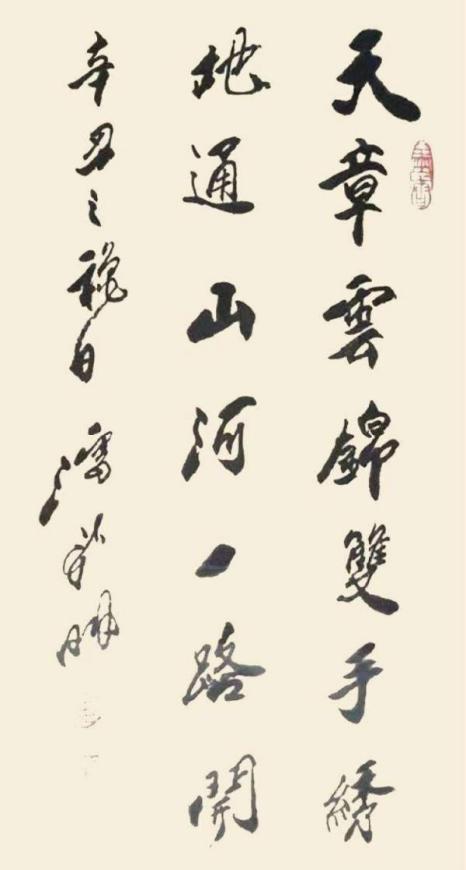 天章雲錦雙手綉
地通山河一路開
辛丑之秋日 潘並明